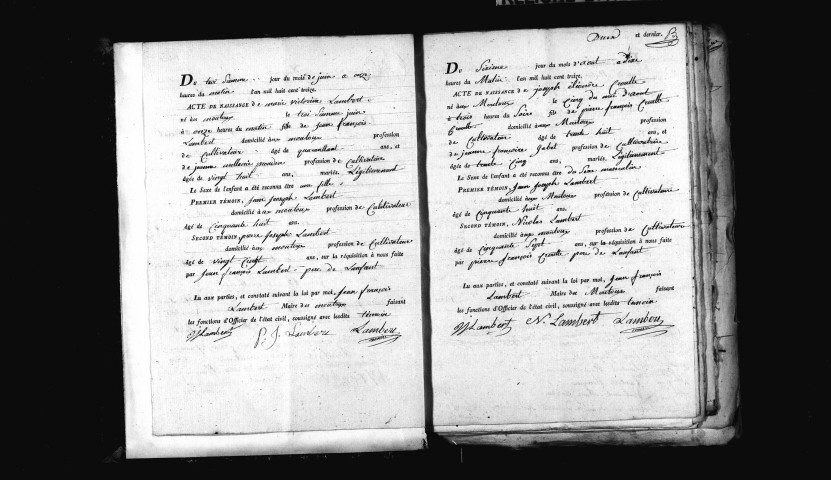 Du troi Siemme jour du mois de juin a onze
heures du matin l'an mil huit cent treize.
ACTE DE NAISSANCE de marie victorine Lambert
né aux moutoux le troi Siemme juin
à onze heures du matin fille de jean françois
Lambert domicilié aux moutoux profession
de Cultivateur âgé de quarante ans, et
de jeanne profession de Cultivatrice
âgée de vingt huit ans, mariés, Légitimement
Le Sexe de l'enfant a été reconnu être une fille
PREMIER TÉMOIN, jean Joseph Lambert
domicilié aux moutoux profession de Cultivateur
âgé de Cinquante huit ans.
SECOND TÉMOIN, pierre Joseph Lambert
domicilié aux moutoux profession de Cultivateur
âgé de vingt ans, sur la réquisition à nous faite
par Jean françois Lambert pere de Lanfant
Lu aux parties, et constaté suivant la loi par moi, Jean françois
Lambert Maire des moutoux faisant
les fonctions d'Officier de l'état civil, soussigné avec lesdits témoin
Lambert P. J. Lambert Lambert
et dernier.
Du Sixieme jour du mois d'aout a dix
heures du Matin l'an mil huit cent treize.
ACTE DE NAISSANCE de joseph
né aux Moutoux le Cinq du mois d'aout
à trois heures du Soire fils de pierre françois
domicilié aux Moutoux profession
de Cultivateur âgé de trente huit ans, et
de jeanne françoise profession de Cultivatrice
âgée de trente Cinq ans, mariés, Légitimement
Le Sexe de l'enfant a été reconnu être du Sexe masculin
PREMIER TÉMOIN, Jean Joseph Lambert
domicilié aux Moutoux profession de Cultivateur
âgé de Cinquante huit ans.
SECOND TÉMOIN, Nicolas Lambert
domicilié aux moutoux profession de Cultivateur
âgé de Cinquante Sept ans, sur la réquisition à nous faite
par pierre françois pere de Lanfant
Lu aux parties, et constaté suivant la loi par moi, Jean françois
Lambert Maire des Moutoux faisant
les fonctions d'Officier de l'état civil, soussigné avec lesdits temoin
Lambert N. Lambert Lambert